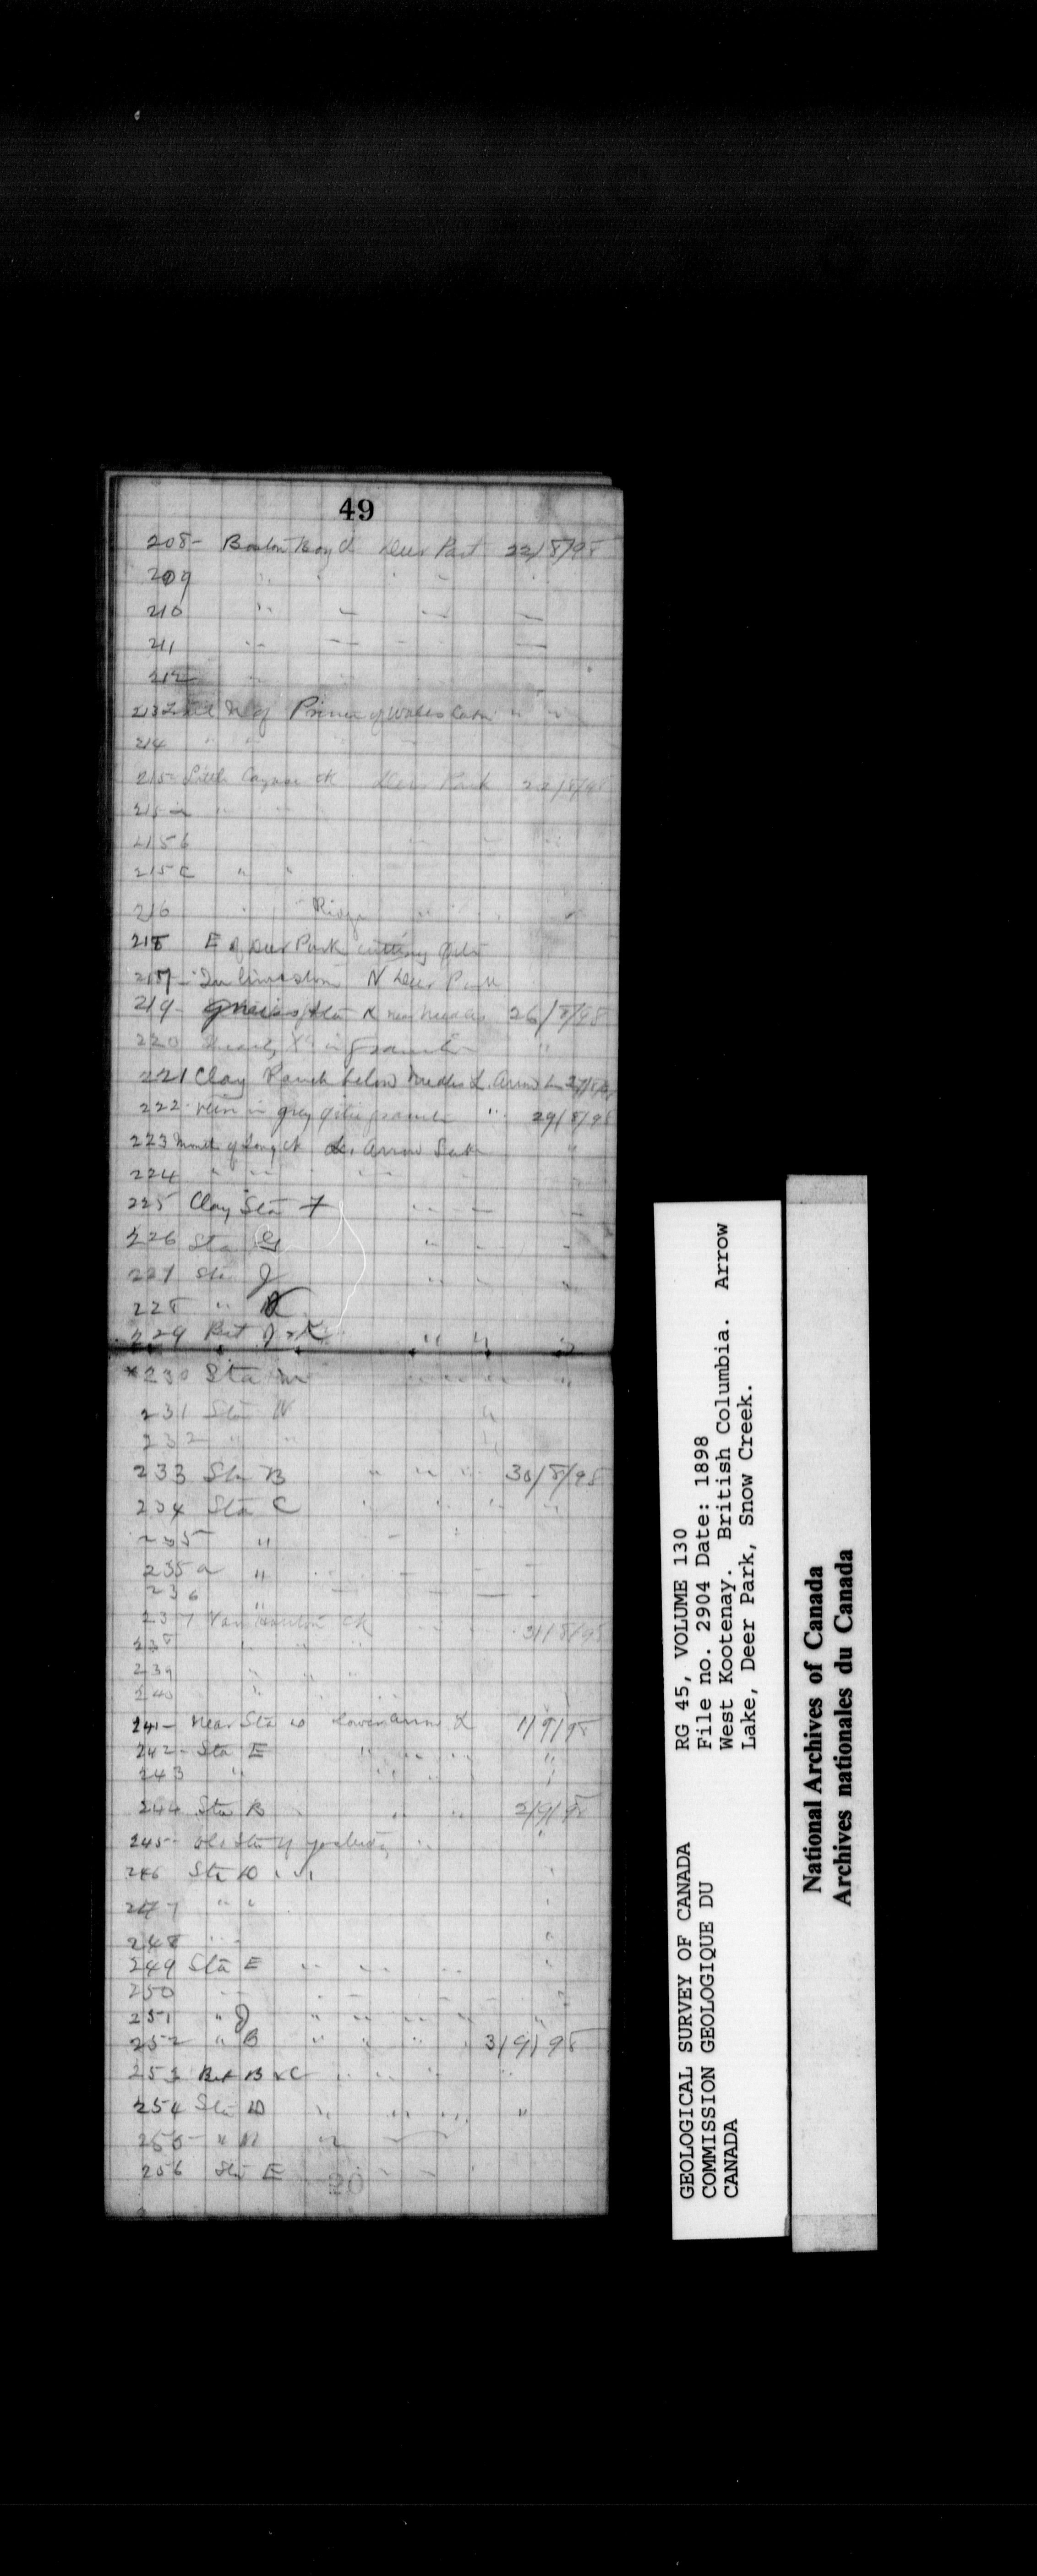 49
208- Boston Boy Cl Deer Park 22/8/98
209 " " " " "
210 " " " "
211 " " " "
212 "
213 N of Prince of Wales Cabin " "
214 " "
215- Little Cayuse Ck Deer Park 22/8/98
215 a " "
215 b " " "
215 c " "
216 " Ridge "
218 E of Deer Park cutting
217- In limestone N Deer Park
219- Gneiss Sta K near Needles 26/8/98
220 in granite "
221 Clay Ranch below Needles L. Arrow L 27/8/98
222- Vein in grey granite " 29/8/98
223 Mouth of Ck L. Arrow Lake "
224 " " "
225 Clay Sta F " "
226 Sta G " " "
227 Sta J " " "
228 " K
229 Bet J & K " " "
x 230 Sta M " " " "
231 Sta N "
232 " " "
233 Sta B " " " 30/8/98
234 Sta C " " " "
235 " " "
235 a " " "
236 "
237 Van Houten Ck 31/8/98
238 " " "
239 " " "
240 " " "
241- Near Sta D Lower Arrow L 1/9/98
242- Sta E " " " "
243 " " " "
244 Sta B " " 2/9/98
245- Old Sta of yesterday " "
246 Sta D " " "
247 " " "
248 " " "
249 Sta E " " " "
250 " " " "
251 " J " " " " "
252 " B " " " 3/9/98
253 Bet B & C " " " "
254 Sta D " " " "
255- " D " "
256 Sta E " "
20
RG 45, VOLUME 130
File no. 2904 Date: 1898
West Kootenay. British Columbia. Arrow
Lake, Deer Park, Snow Creek.
GEOLOGICAL SURVEY OF CANADA
COMMISSION GEOLOGIQUE DU
CANADA
National Archives of Canada
Archives nationales du Canada